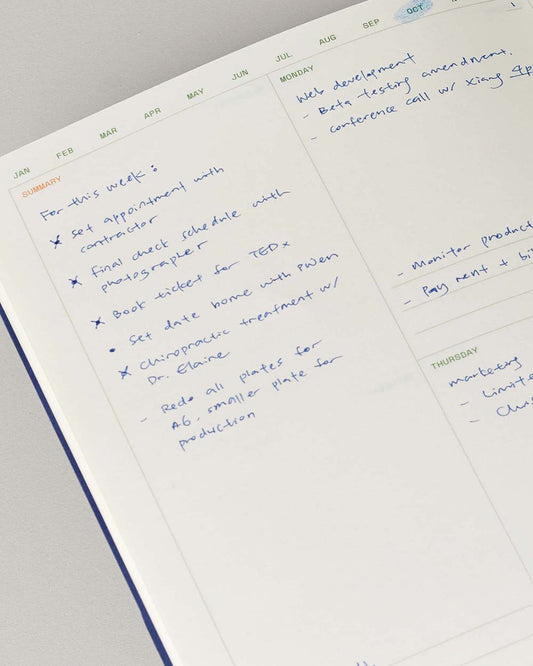 JAN FEB MAR APR MAY JUN JUL AUG SEP OCT
SUMMARY
For this week:
x set appointment with
contractor
x Final check schedule with
photographer
x Book ticket for TEDx
• set date home with Pwen
x Chiropractic treatment w/
Dr. Elaine
- Redo all plates for
A6. smaller plate for
production
1
MONDAY
Web development
- Beta testing amendment.
- conference call w/ Xiang 4p
- Monitor product
- Pay rent + bi
THURSDAY
marketing
- Limite